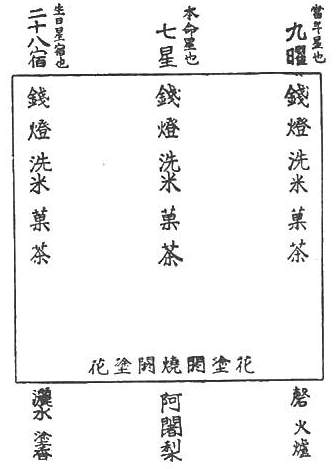 當年星也
九曜
錢 燈 洗米 菓 茶
本命星也
七星
錢 燈 洗米 菓 茶
生日星宿也
二十八宿
錢 燈 洗米 菓 茶
花塗閼燒閼塗花
磬 火爐
阿闍梨
灑水 塗香